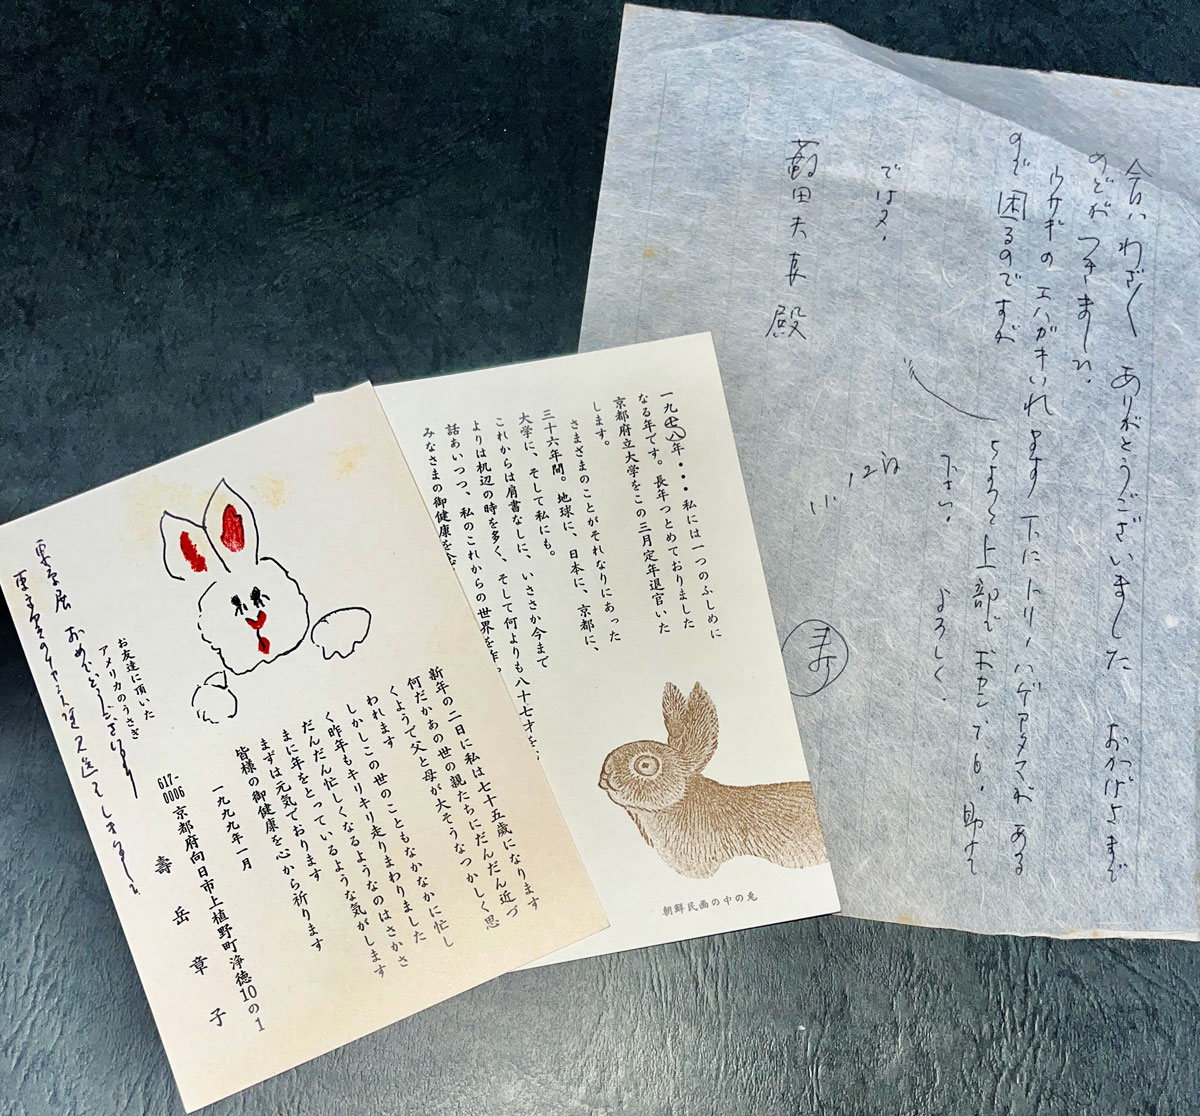 わざ〱 ありがとうございました おかげさまで
めどがつきました。
ウサギのエハガキいれます 下にトリノハゲアタマがある
ので困るのですが
ちょっと上部でおせンで6、助けて
下さい。よろしく。
では又、
壽
殿
一九八七年・・・私には一つのふしめに
なる年です。長年つとめておりました
京都府立大学をこの三月定年退官いた
します。
さまざまのことがそれなりにあった
三十六年間。地球に、日本に、京都に、
大学に、そして私にも。
これからは肩書なしに、いささか今まで
よりは机辺の時を多く、そして何よりも八十七才を
話あいつつ、私のこれからの世界を作
みなさまの御健康を念
朝鮮民画の中の兎
新年の二日に私は七十五歳になります
何だかあの世の親たちにだんだん近づ
くようで父と母が大そうなつかしく思
われます
しかしこの世のこともなかなかに忙し
く昨年もキリキリ走りまわりました
だんだん忙しくなるようなのはさかさ
まに年をとっているような気がします
まずは元気でおります
皆様の御健康を心から祈ります
一九九九年一月
617-0006 京都府向日市上植野町浄徳10の1
壽岳章子
お友達に頂いた
アメリカのうさぎ
おめでとうございます